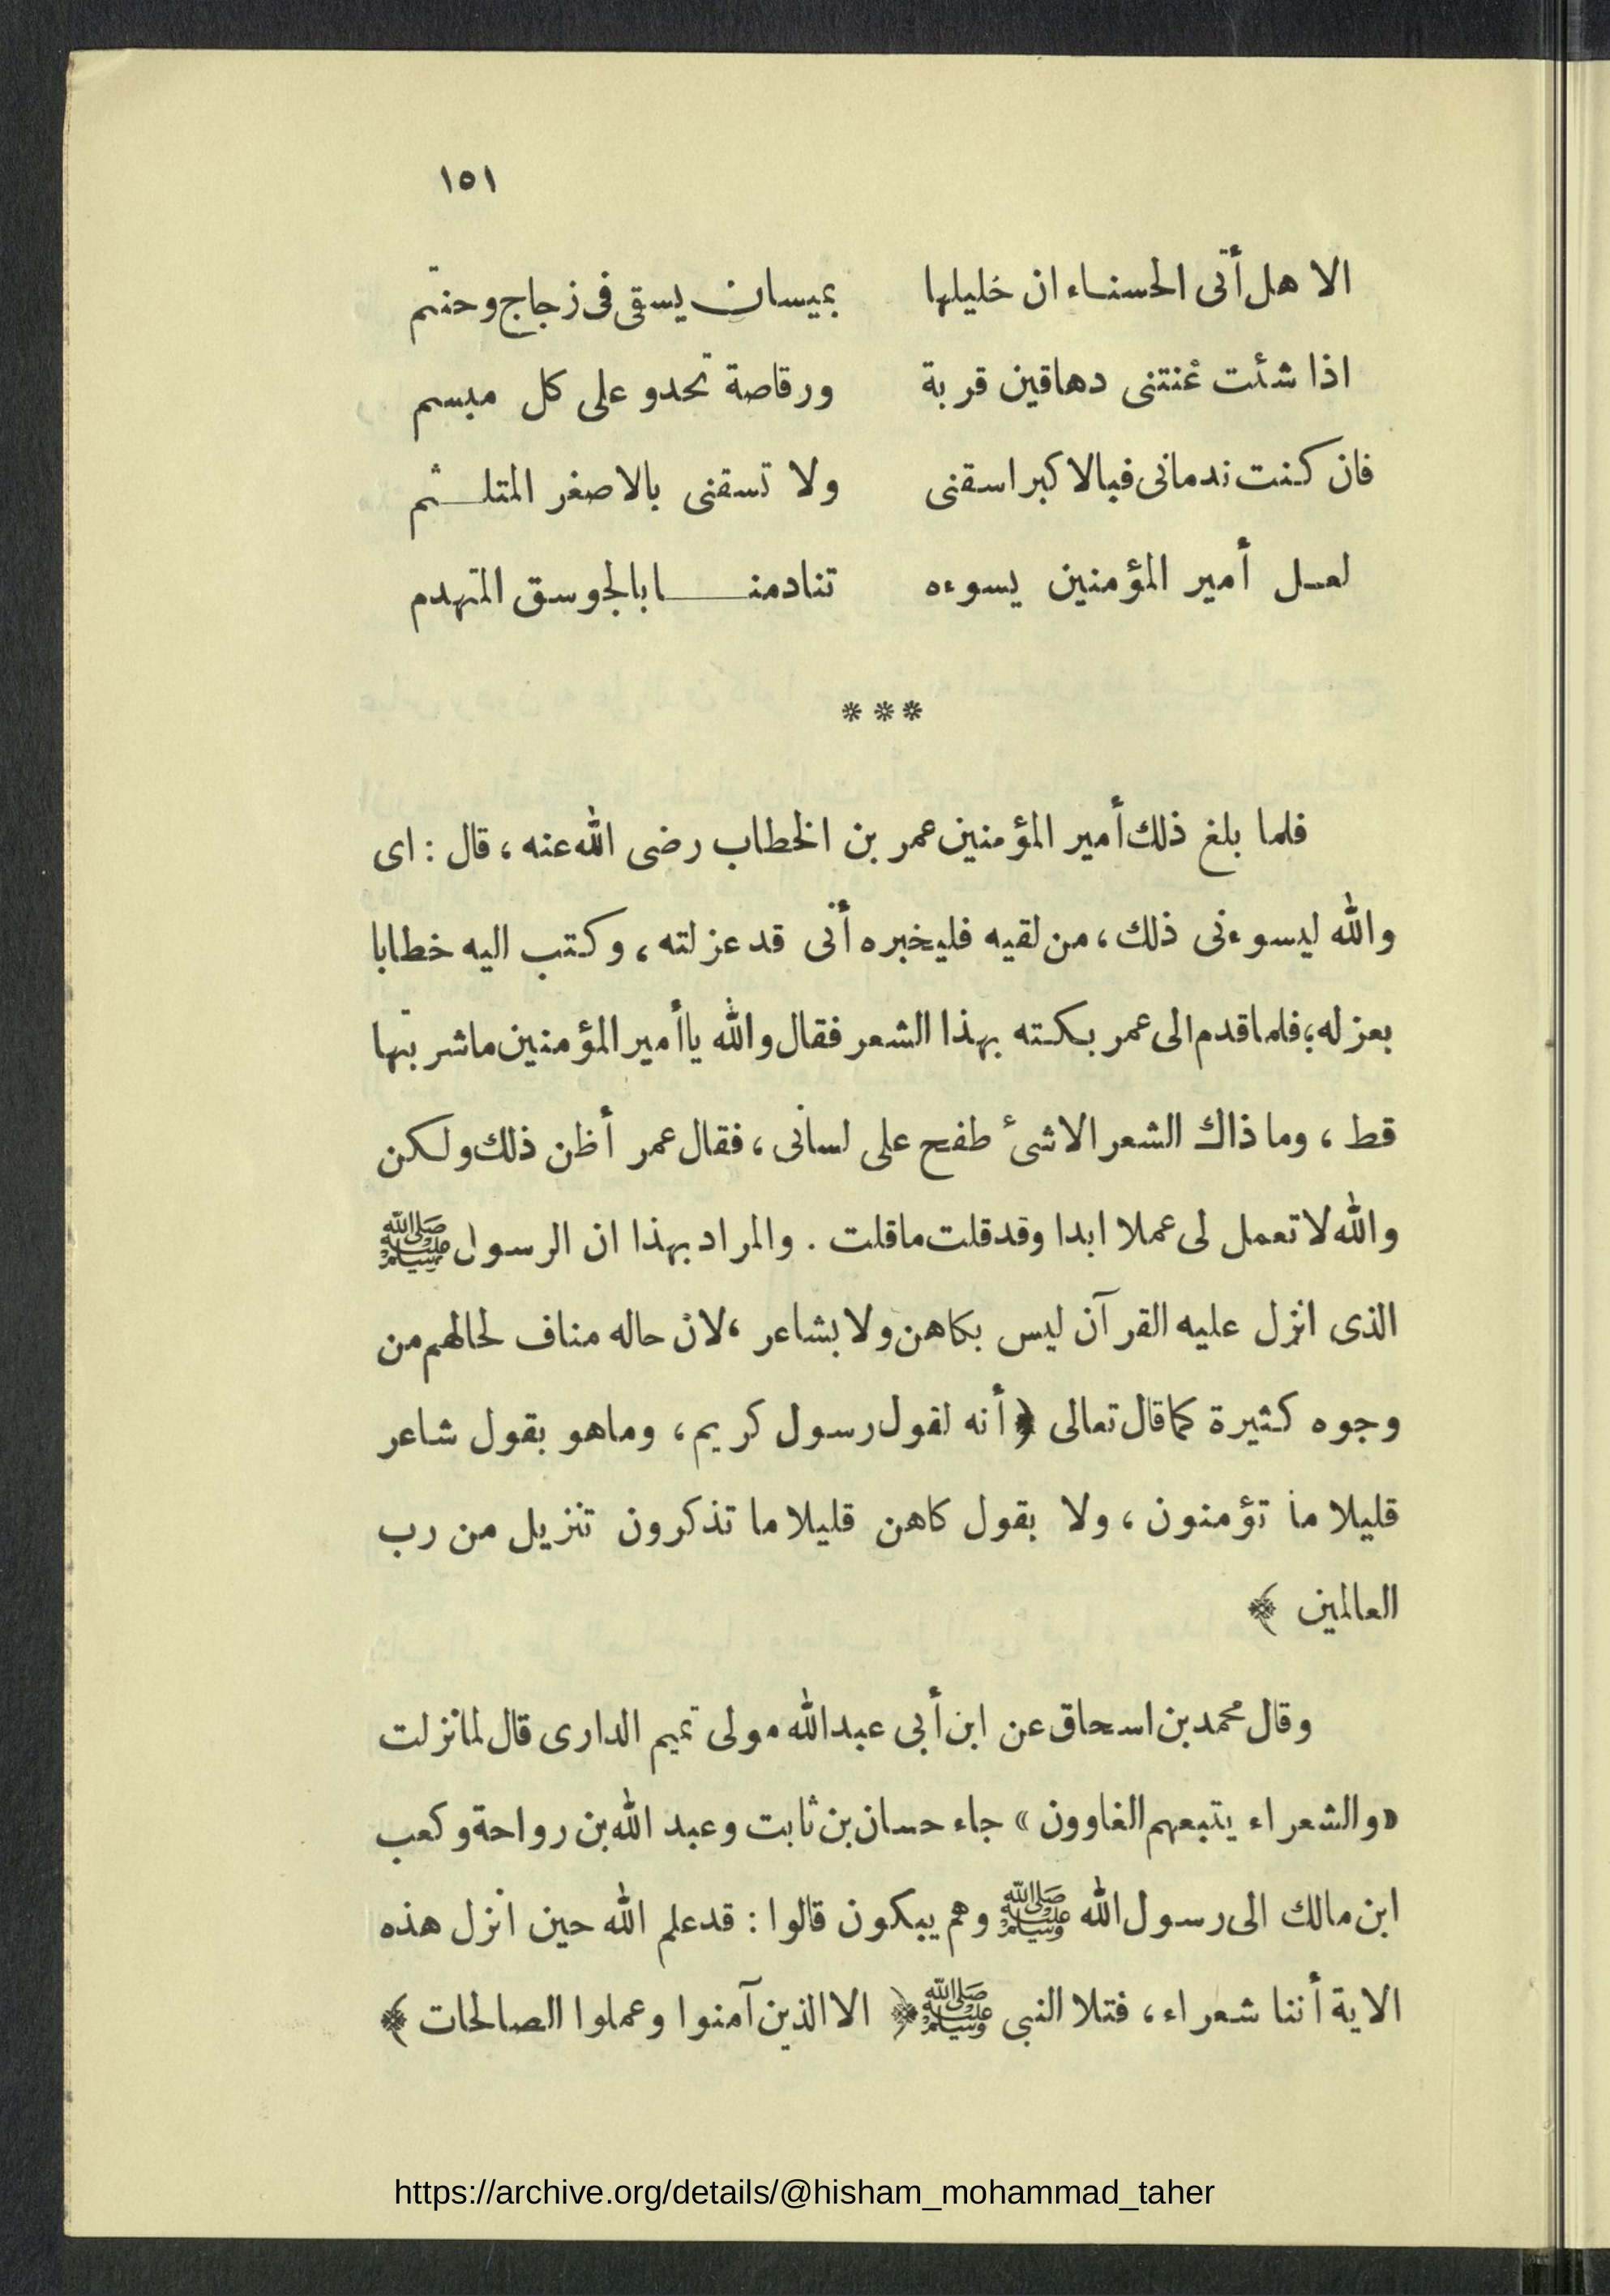 ١٥١
الا هل أتى الحسناء ان خليلها بميسان يسقى فى زجاج وحنتم
اذا شئت غنتنى دهاقين قربة ورقاصة تحدو على كل مبسم
فان كنت ندمانى فبالاكبر اسقنى ولا تسقنى بالاصغر المتلثم
لعل أمير المؤمنين يسوءه تنادمنا بالجوسق المتهدم
***
فلما بلغ ذلك أمير المؤمنين عمر بن الخطاب رضى الله عنه ، قال : اى
والله ليسوءنى ذلك ، من لقيه فليخبره أنى قد عزلته ، وكتب اليه خطابا
بعزله ؛ فلما قدم الى عمر بكته بهذا الشعر فقال والله ياأمير المؤمنين ماشربتها
قط ، وما ذاك الشعر الا شىء طفح على لسانى ، فقال عمر أظن ذلك ولكن
والله لا تعمل لى عملا ابدا وقد قلت ما قلت . والمراد بهذا ان الرسول ﷺ
الذى انزل عليه القرآن ليس بكاهن ولا بشاعر ، لان حاله مناف لحالهم من
وجوه كثيرة كما قال تعالى ﴿ أنه لقول رسول كريم ، وما هو بقول شاعر
قليلا ما تؤمنون ، ولا بقول كاهن قليلا ما تذكرون تنزيل من رب
العالمين ﴾
وقال محمد بن اسحاق عن ابن أبى عبد الله مولى تميم الدارى قال لما نزلت
« والشعراء يتبعهم الغاوون » جاء حسان بن ثابت وعبد الله بن رواحة وكعب
ابن مالك الى رسول الله ﷺ وهم يبكون قالوا : قد علم الله حين انزل هذه
الاية أننا شعراء ، فتلا النبى ﷺ ﴿ الا الذين آمنوا وعملوا الصالحات ﴾
https://archive.org/details/@hisham_mohammad_taher